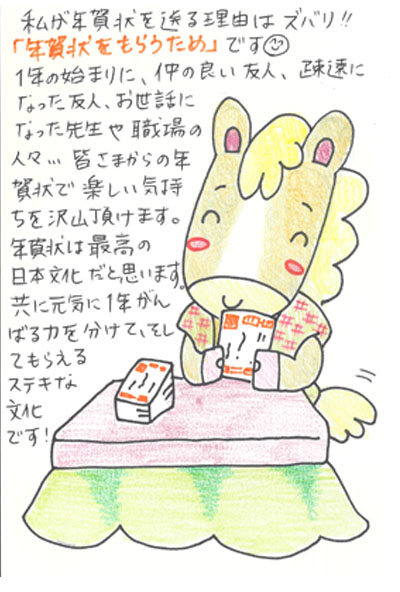 私が年賀状を送る理由は ズバリ!!
「年賀状をもらうため」です☺
1年の始まりに、仲の良い友人、疎遠に
なった友人、お世話に
なった先生や職場の
人々… 皆さまからの年
賀状で楽しい気持
ちを沢山頂けます。
年賀状は最高の
日本文化だと思います。
共に元気に1年がん
ばる力を分けて、そし
てもらえる
ステキな
文化
です!